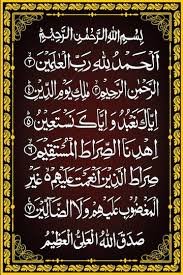 بِسْمِ اللهِ الرَّحْمٰنِ الرَّحِيْمِ
اَلْحَمْدُ لِلّٰهِ رَبِّ الْعٰلَمِيْنَ
الرَّحْمٰنِ الرَّحِيْمِ مٰلِكِ يَوْمِ الدِّيْنِ
اِيَّاكَ نَعْبُدُ وَاِيَّاكَ نَسْتَعِيْنُ
اِهْدِنَا الصِّرَاطَ الْمُسْتَقِيْمَ
صِرَاطَ الَّذِيْنَ اَنْعَمْتَ عَلَيْهِمْ غَيْرِ
الْمَغْضُوْبِ عَلَيْهِمْ وَلَا الضَّالِّيْنَ
صَدَقَ اللهُ الْعَلِيُّ الْعَظِيْمُ